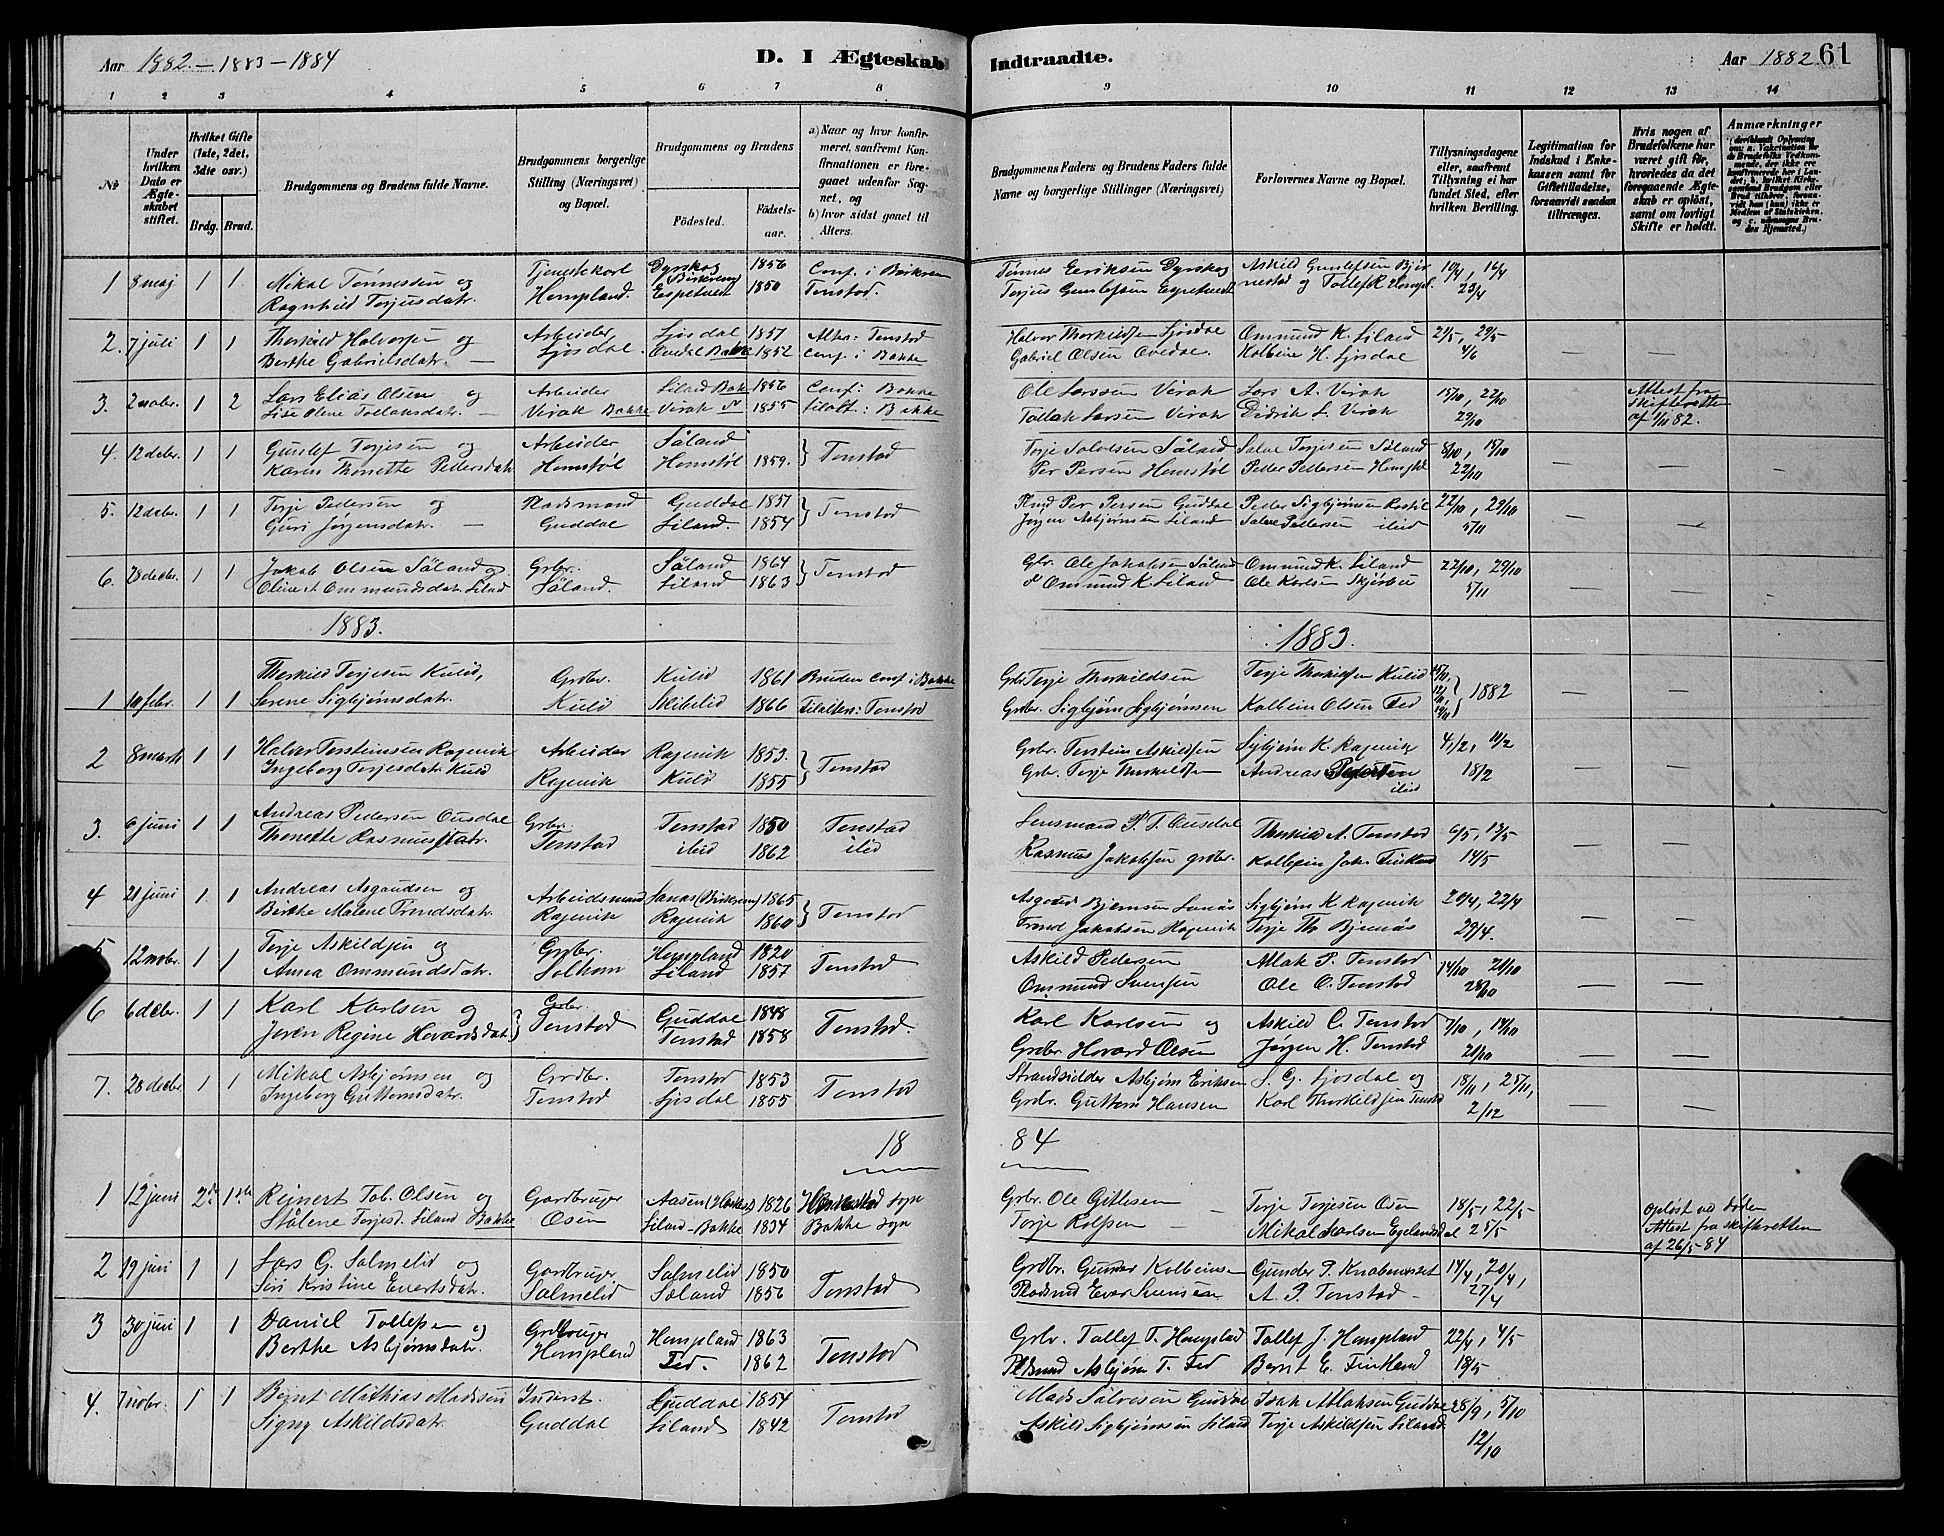 Aar 1882 – 1883 – 1884
D. I Ægteskab Indtraadte.
Aar 1882 61
1 2 3 4 5 6 7 8 9 10 11 12 13 14
№
Under hvilken Dato er Ægteskabet stiftet.
Hvilket Gifte (1ste, 2det, 3dte osv.)
Brdg. Brud.
Brudgommens og Brudens fulde Navne.
Brudgommens borgerlige Stilling (Næringsvei) og Bopæl.
Brudgommens og Brudens
Födested. Födselsaar.
a) Naar og hvor konfirmeret, saafremt Konfirmationen er foregaaet udenfor Sognet, og
b) hvor sidst gaaet til Alters.
Brudgommens Faders og Brudens Faders fulde Navne og borgerlige Stillinger (Næringsvei)
Forlovernes Navne og Bopæl.
Tillysningsdagene eller, saafremt Tillysning ei har fundet Sted, efter hvilken Bevilling.
Legitimation for Indskud i Enkekassen samt for Giftetilladelse, forsaavidt saadan tiltrænges.
Hvis nogen af Brudefolkene har været gift før, hvorledes da det foregaaende Ægteskab er opløst, samt om lovligt Skifte er holdt.
Anmærkninger
1 8 maj 1 1 Mikal Tønnessen og Tjenestekarl Dyrskog Birkrem 1856 Conf. i Birkrem Tønnes Eeriksen Dyrskog Askild Gunlefsen Bjør 10/4, 16/4
Ragnhild Torjusdatr. Hompland. Espetvedt 1850 Tonstad. Torjus Gunlefsen Espetvedt nestad og Tollef R. Hompl. 23/4
2. 7 juli 1 1 Thorkild Halvorsen og Arbeider Ljosdal 1857 Alter: Tonstad Halvor Thorkildsen Ljosdal Ommund K. Liland 21/5, 29/5
Berthe Gabrielsdatr. – Ljosdal. Ovedal Bakke 1852 Conf. i Bakke Gabriel Olsen Ovedal. Kolbein H. Ljosdal 4/6 – –
3. 2 nobr. 1 2 Lars Elias Olsen og Arbeider Liland Bak 1856 Conf: Bakke Ole Larssen Virak Lars A. Virak 15/10, 22/10 Attest fra
Lise Olene Tollaksdatr. – Virak Bakke Virak 1855 Tilalt: Bakke Tollak Larsen Virak Didrik L. Virak 29/10 – Skifteretten
af 1/11 82.
4. 12 debr. 1 1 Gunlef Torjesen og Arbeider Såland Tonstad Torje Salvesen Såland Salve Torjesen Såland 8/10, 15/10
Karen Thonette Pedersdatr Homstøl Homstøl 1859. Per Persen Homstøl Peder Pedersen Homstøl 22/10 – –
5. 12 debr. 1 1 Torje Pedersen og Pladsmand Guddal 1857 Tonstad Plmd Per Persen Guddal Peder Sigbjørnsen Rostøl 22/10, 29/10
Guri Jørgensdatr. – Guddal Liland. 1854 Jørgen Asbjørnsen Liland Salve Pedersen ibid 5/11 – –
6. 28 decbr. 1 1 Jakob Olsen Såland og Grbr. Såland 1864 Tonstad Gbr. Ole Jakobsen Såland Ommund K. Liland 22/10, 29/10
Oline A. Ommundsdatr. Liland Såland. Liland 1863 Ommund K. Liland Ole Karlsen Skjørbu 5/11 – –
1883.
1883.
1 10 febr. 1 1 Thorkild Torjesen Kulid, Grbr. Kulid 1861 Bruden Conf. i Bakke Grbr Torje Thorkildsen Torje Thorkildsen Kulid 1882
Serene Sigbjørnsdatr. Kulid Skibelid 1866 Tilalters: Tonstad Grbr. Sigbjørn Sigbjørnsen Kolbein Olsen Fed 
2 8 marts 1 1 Halvor Torsteinsen Ragevik Arbeider Ragevik 1853. Tonstad Grbr. Torstein Askildsen Sigbjørn K. Ragevik 4/2, 11/2
Ingeborg Torjesdatr. Kulid Ragevik Kulid 1855 Grbr. Torje Thorkildsen Andreas Pedersen ibid 18/2 – –
3. 6 juni 1 1 Andreas Pedersen Ousdal Grbr. Tonstad 1850 Tonstad Lensmand P. T. Ousdal Thorkild A. Tonstad 6/5, 13/5
Thonette Rasmusdatr. Tonstad ibid 1862 ibid Rasmus Jakobsen grdbr. Kolbein Jak. Finkland 14/5 – –
4 21 juni 1 1 Andreas Asgaudsen og Arbeidsmand Lanas (Birkrem) 1865 Tonstad Asgaud Bjørnsen Lanås Sigbjørn K. Ragevik 20/4, 22/4
Birthe Malene Trondsdatr. Ragevik Ragevik 1860 Trond Jakobsen Ragevik Torje Th. Bjørnås 29/4. – –
5 12 nobr. 1 1 Torje Askildsen og Grdbr. Hompland 1820 Tonstad Askild Pedersen Atlak P. Tonstad 14/10 21/10
Anna Ommundsdatr. Solhom Liland 1857 Ommund Svensen Ole O. Tonstad 28/10 – –
6 6 debr. 1 1 Karl Karlsen og Grbr. Guddal 1848 Tonstad. Karl Karlsen og Askild O. Tonstad 7/10, 14/10
Joren Regine Hovardsdatr. Tonstad Tonstad 1858 Grdbr Hovard Olsen Jørgen H. Tonstad 21/10 – –
7. 28 decbr. 1 1 Mikal Asbjørnsen og Grdbr. Tonstad 1853 Tonstad Strandsidder Asbjørn Eriksen S. G. Ljosdal og 18/11, 25/11,
Ingeborg Guttormsdatr. Tonstad Ljosdal 1855 Grbr. Guttorm Hansen Karl Thorkildsen Tonstad 2/12 – –
18 84
1 12 juni 2d 1ste Reinert Tob. Olsen og Gardbruger Aasen 1826 sogn Grbr. Ole Gitlesen Torje Torjesen Osen 18/5, 22/5 opløst ved døden
Stålene Torjesd. Liland Bakke Osen Liland-Bakke 1834 Bakke sogn Torje Rolfsen – Mikal Karlsen Egelandsdal 25/5 Attest fra skifteretten
af 26/5-84
2 19 juni 1 1 Lars G. Salmelid og Gardbruger Salmelid 1850 Tonstad Grdbr. Gunder Kolbeinsen Gunder P. Knabenuset 14/4, 20/4,
Siri Kristine Evertsdatr. Salmelid Såland 1856 Pladsmd Ever Svensen A. P. Tonstad – 27/4
3 30 juni 1 1 Daniel Tollefsen og Grdbruger Hompland 1863 Tonstad Grbr. Tollef T. Hompland Tollef J. Hompland 22/4, 4/5
Berthe Asbjørnsdatr. Hompland Fed. 1862 Pldsmd Asbjørn T. Fed Bernt E. Finkland 18/5
4. 7 nobr. 1 1 Bernt Mathias Madssen Inderst. Guddal 1854 Tonstad Mads Salvesen Guddal Isak Atlaksen Guddal 28/9, 5/10
Signy Askildsdatr. Guddal Liland 1842 Askild Sigbjørnsen Liland Torje Askildsen Liland 12/10